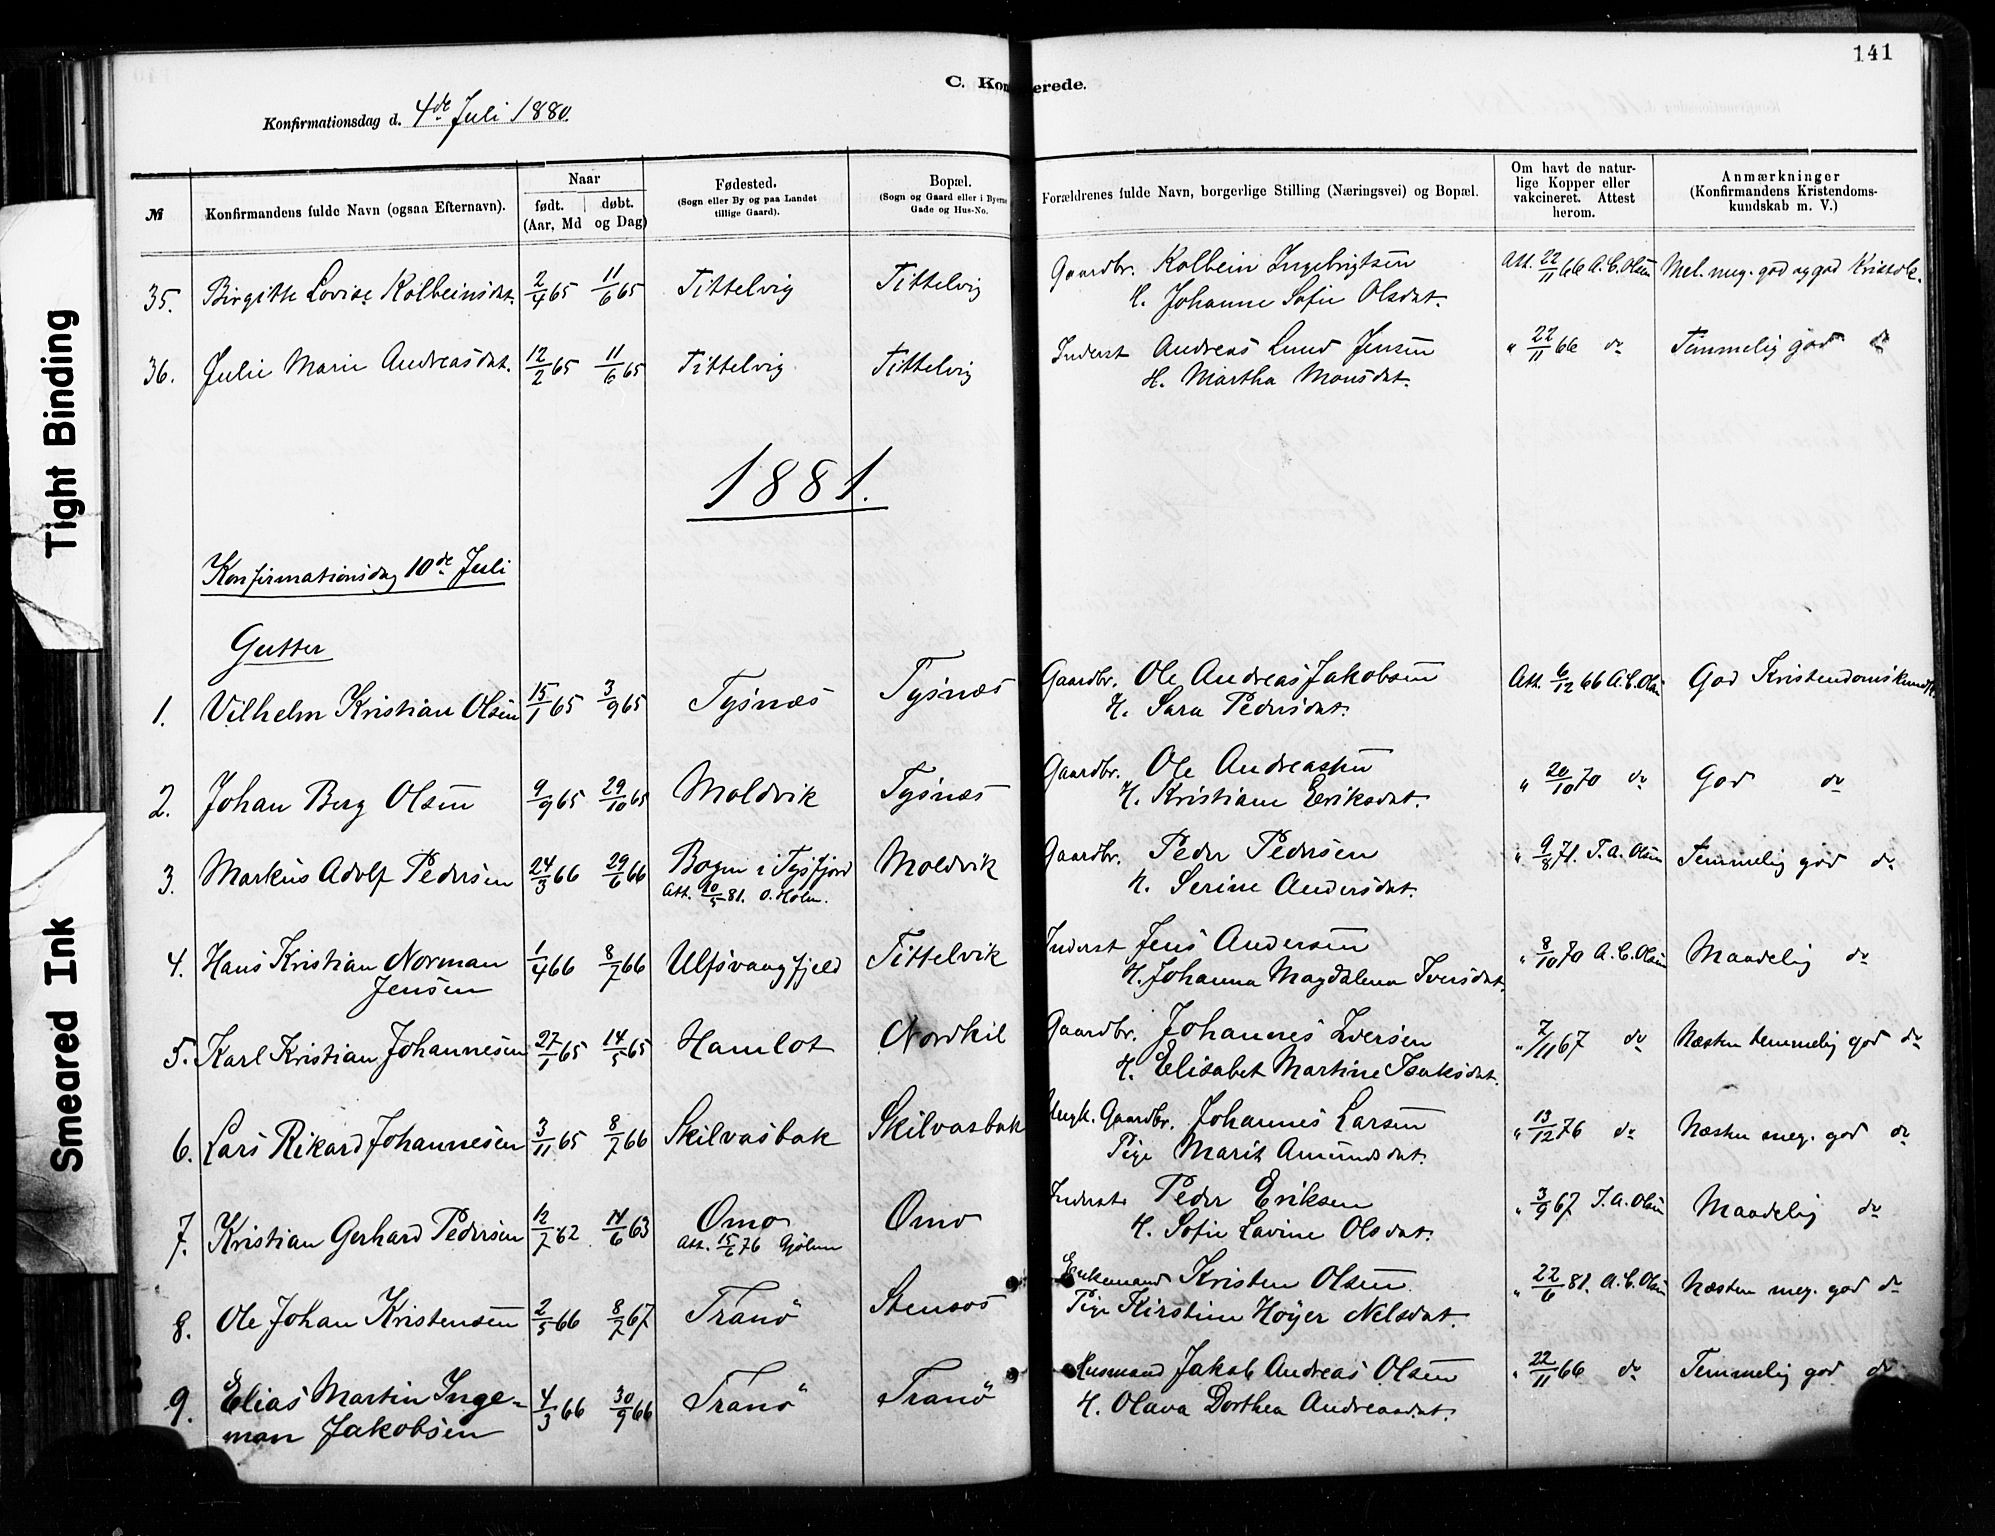 141
C. Kon erede.
Konfirmationsdag d. 4de Juli 1880.
№
Konfirmandens fulde Navn (ogsaa Efternavn).
Naar
født. døbt.
(Aar, Md og Dag)
Fødested.
(Sogn eller By og paa Landet
tillige Gaard).
Bopæl.
(Sogn og Gaard eller i Byerne
Gade og Hus-No.
Forældrenes fulde Navn, borgerlige Stilling (Næringsvei) og Bopæl.
Om havt de natur-
lige Kopper eller
vakcineret. Attest
herom.
Anmærkninger
(Konfirmandens Kristendoms-
kundskab m. V.)
35. Birgitte Lovise Kolbeinsdat. 2/4 65 11/6 65 Tittelvig Tittelvig Gaardbr. Kolbein Ingebrigtsen Att. 22/11 66 A. C. Olsen Mel. meg. god og god Kristdk.
H. Johanne Sofie Olsdat.
36. Julie Marie Andreasdat. 12/2 65 11/6 65 Tittelvig Tittelvig Inderst Andreas Lund Jensen " 22/11 66 do Temmelig god do
H. Martha Monsdat.
1881.
Konfirmationsdag 10de Juli
Gutter
1. Vilhelm Kristian Olsen 15/1 65 3/9 65 Tysnæs Tysnæs Gaardbr. Ole Andreas Jakobsen Att. 6/12 66 A. C. Olsen God Kristendomskundsk
H. Sara Pedersdat.
2. Johan Berg Olsen 9/9 65 29/10 65 Moldvik Tysnæs Gaardbr. Ole Andreassen " 20/10 70 do God do
H. Kristiane Eriksdat.
3. Markus Adolf Pedersen 24/3 66 29/6 66 Bogen i Tysfjord Moldvik Gaardbr. Peder Pedersen " 9/8 71. T. A. Olsen Temmelig god do
Att. 10/5 81. O. Holm. H. Serine Andersdat.
4. Hans Kristian Norman 1/4 66 8/7 66 Ulfsvaagfjeld Tittelvik Inderst Jens Andersen " 8/10 70 A. C. Olsen Maadelig do
Jensen H. Johanna Magdalena Iversdat.
5. Karl Kristian Johannesen 27/1 65 14/5 65 Hamlot Nordkil Gaardbr. Johannes Iversen " 7/11 67 do Næsten temmelig god do
H. Elisabet Martine Isaksdat.
6. Lars Rikard Johannesen 3/11 65 8/7 66 Skilvasbak Skilvasbak Ungk. Gaardbr. Johannes Larsen " 13/12 76 do Næsten meg. god do
Pige Marit Amundsdat.
7. Kristian Gerhard Pedersen 12/7 62 14/6 63 Ømo Ømo Inderst Peder Eriksen " 3/9 67 T. A. Olsen Maadelig do
Att. 15/6 76 H. Sofie Lavine Olsdat.
8. Ole Johan Kristensen 2/5 66 8/7 67 Tranö Stensos Enkemand Kristen Olsen " 22/6 81. A. C. Olsen Næsten meg. god do
Pige Kirstine Höyer Nelsdat.
9. Elias Martin Inge- 4/3 66 30/9 66 Tranö Tranö Husmand Jakob Andreas Olsen " 22/11 66 do Temmelig god do
man Jakobsen H. Olava Dorthea Andreasdat.
Tight Binding
Smeared Ink